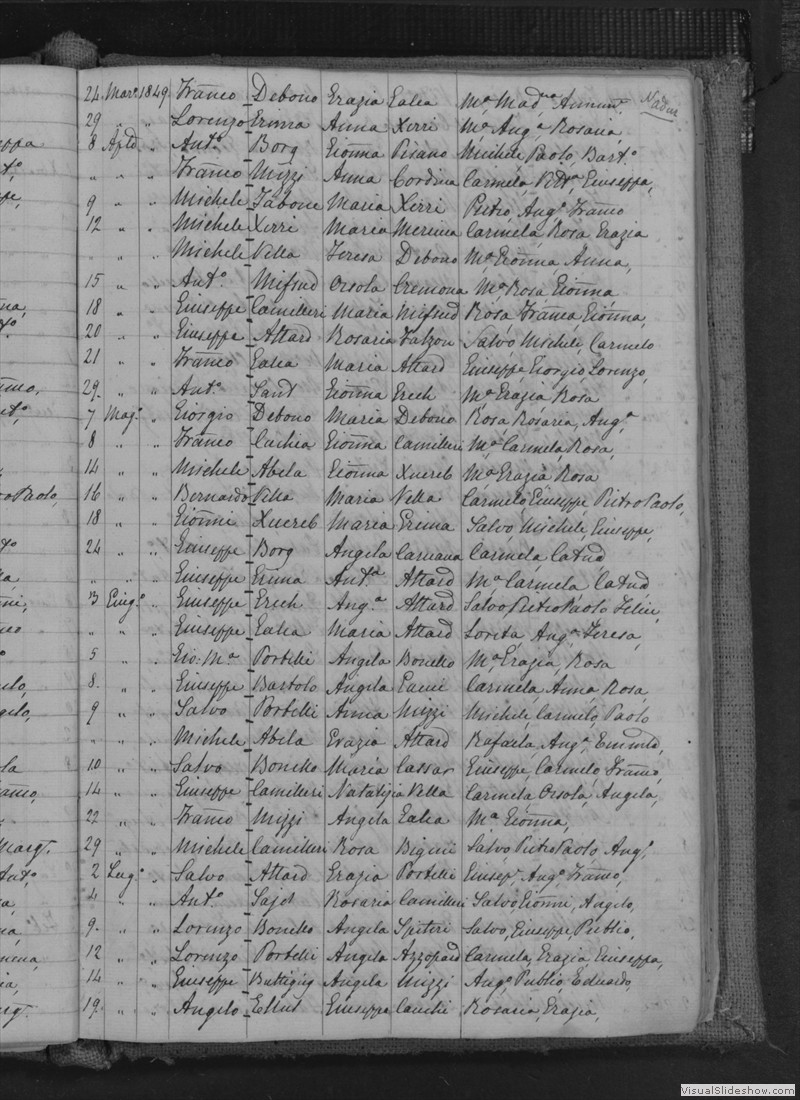 24 Mar. 1849 Franco Debono Grazia Galea Mª Madna Annunª Nadur
29 " " Lorenzo Grima Anna Xerri Mª Angª Rosaria
8 Aple " Antº Borg Gionna Pisano Michele Paolo, Bartº
" " " Franco Mizzi Anna Cordina Carmela Giuseppa,
9 " " Michele Tabone Maria Xerri Pietro, Angº Franco
12 " " Michele Xerri Maria Mercieca Carmela Rosa Grazia
" " Michele Vella Teresa Debono Mª Gionna, Anna,
15 " " Antº Mifsud Orsola Cremona Mª Rosa Gionna
18 " " Giuseppe Camilleri Maria Mifsud Rosa Franca, Gionna,
20 " " Giuseppe Attard Rosaria Falzon Salvo Michele, Carmelo
21 " " Franco Galea Maria Attard Giuseppe, Giorgio, Lorenzo,
29 " " Antº Sant Gionna Grech Mª Grazia Rosa
7 Magº " Giorgio Debono Maria Debono Rosa Rosaria, Angª
8 " " Franco Cachia Gionna Camilleri Mª Carmela, Rosa,
14 " " Michele Abela Gionna Xuereb Mª Grazia Rosa
16 " " Bernardo Vella Maria Vella Carmelo, Giuseppe Pietro Paolo,
18 " " Gionni Xuereb Maria Grima Salvo, Michele, Giuseppe,
24 " " Giuseppe Borg Angela Caruana Carmela, Catud
" " " Giuseppe Grima Antª Attard Mª Carmela Catud
3 Giugº " Giuseppe Grech Angª Attard Salvo Pietro Paolo Felice,
" " " Giuseppe Galea Maria Attard Loreta, Angª Teresa,
5 " " Gio: Mª Portelli Angela Bonello Mª Grazia, Rosa
8. " " Giuseppe Bartolo Angela Carmela, Anna, Rosa
9 " " Salvo Portelli Anna Mizzi Michele Carmelo, Paolo
" " Michele Abela Grazia Attard Rafaela, Angª
10 " " Salvo Bonello Maria Cassar Giuseppe, Carmelo, Franco,
14 " " Giuseppe Camilleri Natalizia Vella Carmela Orsola, Angela,
22 " " Franco Mizzi Angela Galea Mª Gionna,
29 " " Michele Camilleri Rosa Bigeni Salvo, Pietro Paolo, Angº
2 Lugº " Salvo Attard Grazia Portelli Giusepe, Angº, Franco,
4 " " Antº Said Rosaria Camilleri Salvo, Gionni, Angelo,
9. " " Lorenzo Bonello Angela Spiteri Salvo, Giuseppe, Publio,
12 " " Lorenzo Portelli Angela Azzopard Carmela, Grazia, Giuseppa,
14 " " Giuseppe Buttigieg Angela Mizzi Angº Publio, Eduardo
19. " " Angelo Ellul Giuseppa Cauchi Rosaria, Grazia,
VisualSlideshow.com